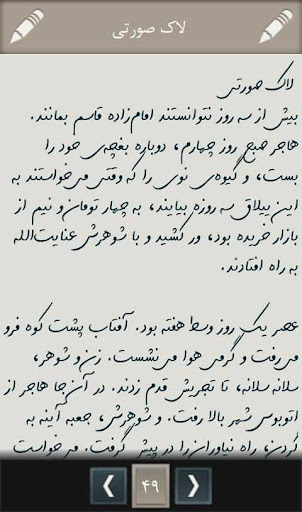 لاک صورتی
لاک صورتی
بیش از سه روز نتوانستند امامزاده قاسم بمانند.
هاجر صبح روز چهارم، دوباره بغچه‌ی خود را
بست، و گیوه‌ی نوی را که وقتی می‌خواستند به
این ییلاق سه روزه بیایند، به چهار تومان و نیم از
بازار خریده بود، ور کشید و با شوهرش عنایت‌الله
به راه افتادند.
عصر یک روز وسط هفته بود. آفتاب پشت کوه فرو
می‌رفت و گرمی هوا می‌نشست. زن و شوهر،
سلانه سلانه، تا تجریش قدم زدند. در آن‌جا هاجر از
اتوبوس شهر بالا رفت. و شوهرش، جعبه آینه به
گردن، راه نیاوران را در پیش گرفت. می‌خواست
۴۹